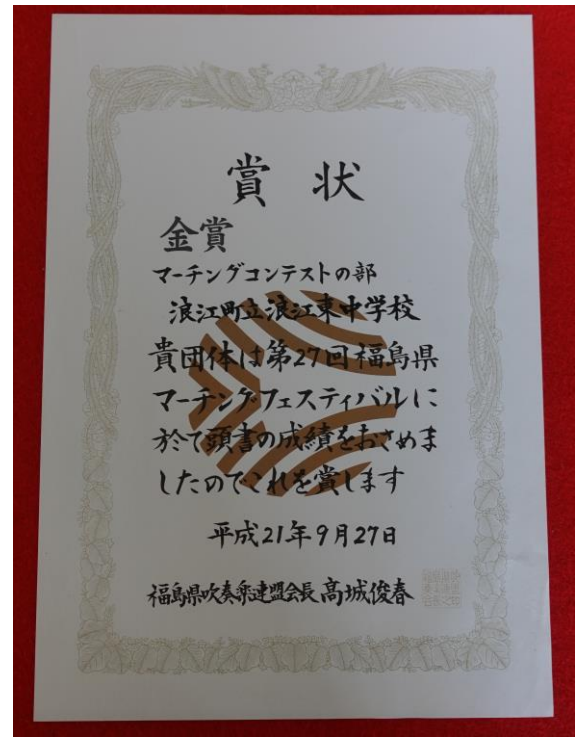 賞状
金賞
マーチングコンテストの部
浪江町立浪江東中学校
貴団体は第27回福島県
マーチングフェスティバルに
於て頭書の成績をおさめま
したのでこれを賞します
平成21年9月27日
福島県吹奏楽連盟会長髙城俊春